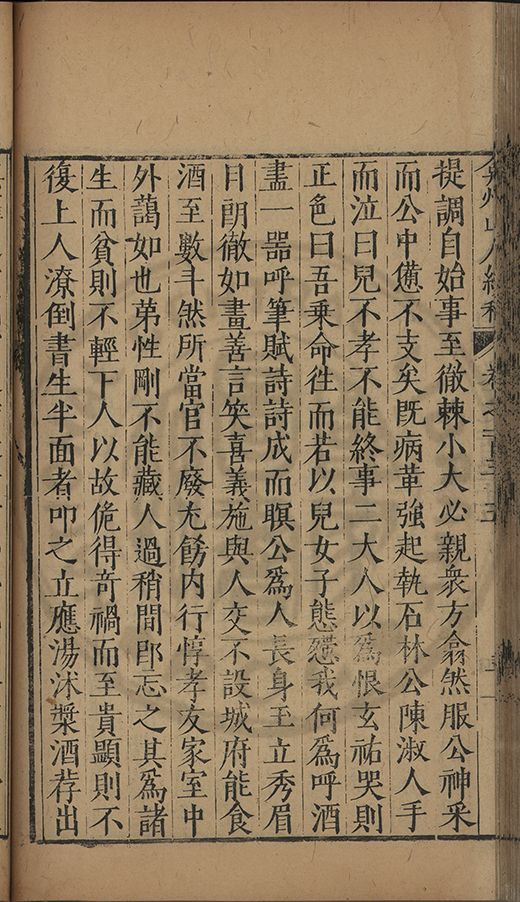 提調自始事至徹棘小大必親衆方翕然服公神采
而公中憊不支矣既病革強起執石林公陳淑人手
而泣曰兒不孝不能終事二大人以爲恨玄祐哭則
正色曰吾乗命徃而若以兒女子態愬我何爲呼酒
盡一器呼筆賦詩詩成而暝公爲人長身玉立秀眉
目朗徹如畫善言笑喜義施與人交不設城府能食
酒至數斗然所當官不廢尢飭内行惇孝友家室中
外藹如也弟性剛不能藏人過稍間卽忘之其爲諸
生而貧則不輕下人以故佹得竒禍而至貴顯則不
復上人潦倒書生半面者叩之立應湯沐槳酒荐出